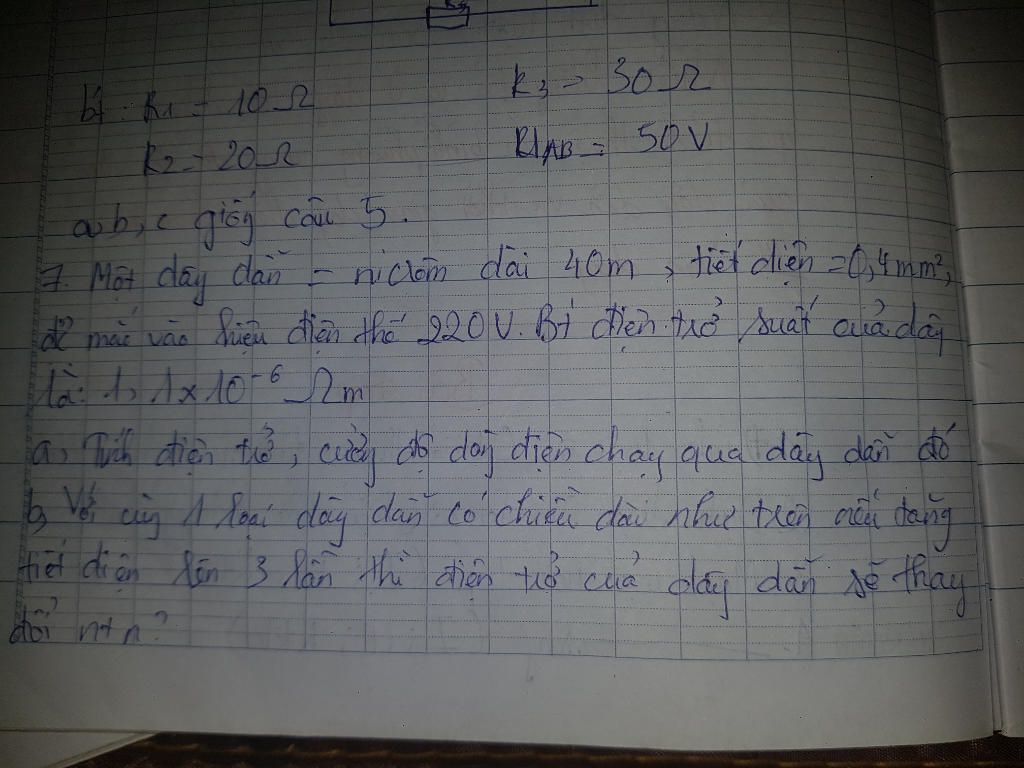 bt: R1 = 10 Ω R3 = 30 Ω
R2 = 20 Ω UAB = 50V
a, b, c giống câu 5.
7. Một dây dẫn = nicrôm dài 40m, tiết diện = 0,4mm²,
đc mắc vào hiệu điện thế 220V. Bt điện trở suất của dây
là: 1,1x10⁻⁶ Ωm
a, Tính điện trở, cường độ dòng điện chạy qua dây dẫn đó
b, Với cùng 1 loại dây dẫn có chiều dài như trên nếu tăng
tiết diện lên 3 lần thì điện trở của dây dẫn sẽ thay
đổi ntn?